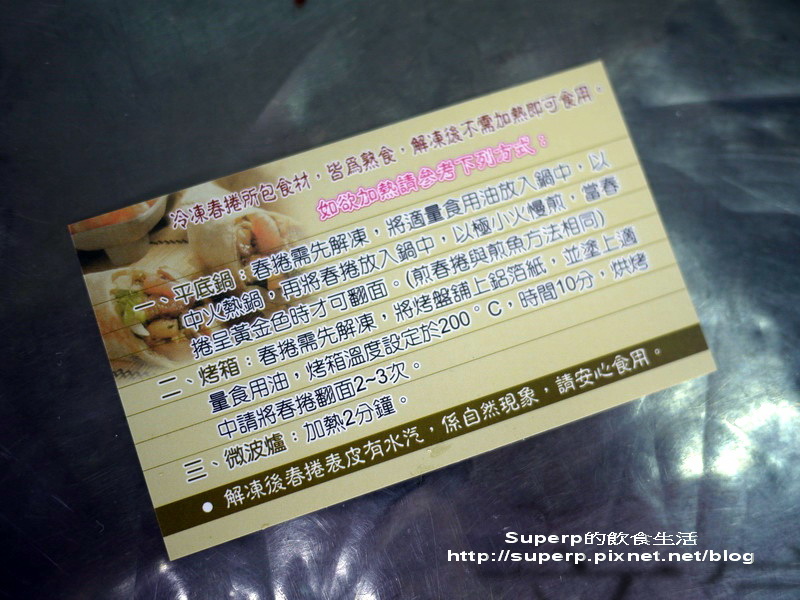 冷凍春捲所包食材，皆為熟食，解凍後不需加熱即可食用。
如欲加熱請參考下列方式：
一、平底鍋：春捲需先解凍，將適量食用油放入鍋中，以
中火熱鍋，再將春捲放入鍋中，以極小火慢煎，當春
捲呈黃金色時才可翻面。(煎春捲與煎魚方法相同)
二、烤箱：春捲需先解凍，將烤盤舖上鋁箔紙，並塗上適
量食用油，烤箱溫度設定於200°C，時間10分，烘烤
中請將春捲翻面2~3次。
三、微波爐：加熱2分鐘。
• 解凍後春捲表皮有水汽，係自然現象，請安心食用。
Superp的飲食生活
http://superp.pixnet.net/blog